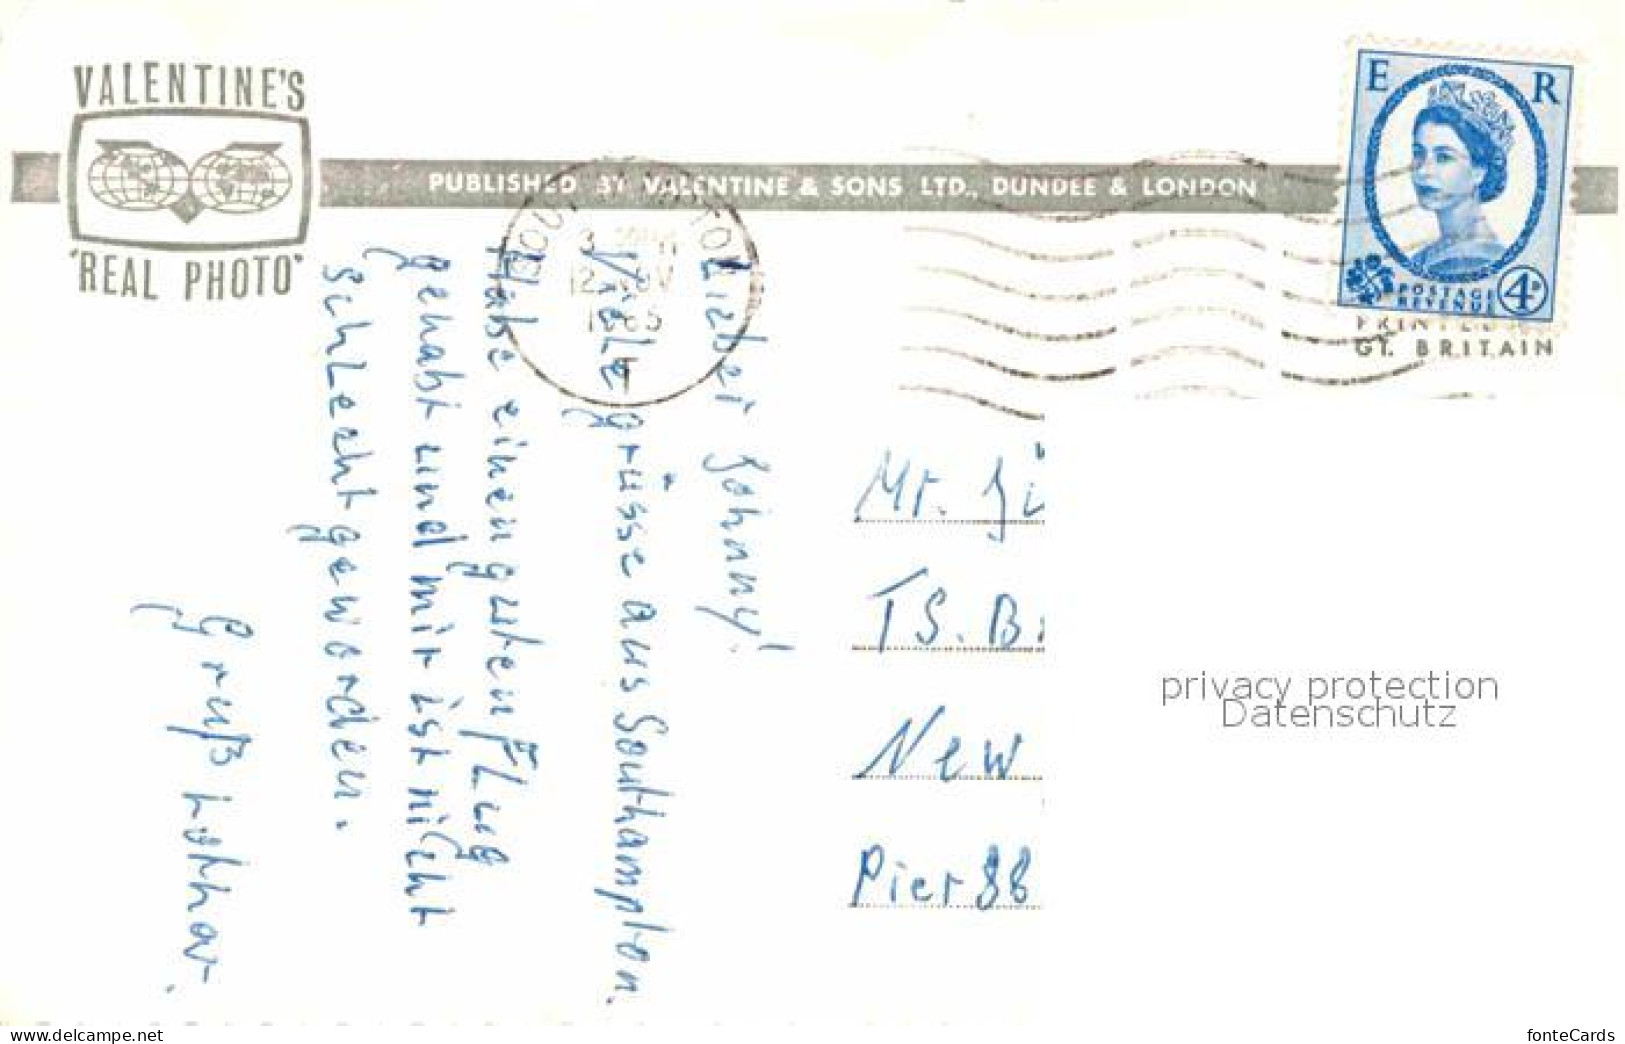 VALENTINE'S
'REAL PHOTO'
PUBLISHED BY VALENTINE & SONS LTD., DUNDEE & LONDON
E R
POSTAGE
REVENUE
4D
GT. BRITAIN
12 NOV
1965
Lieber Johnny!
Viele grüsse aus Southampton.
Habe einen guten Flug
gehabt und mir ist nicht
schlecht geworden.
Gruß Lothar.
Mr.
TS.
New
Pier 88
privacy protection
Datenschutz
www.delcampe.net
fonteCards